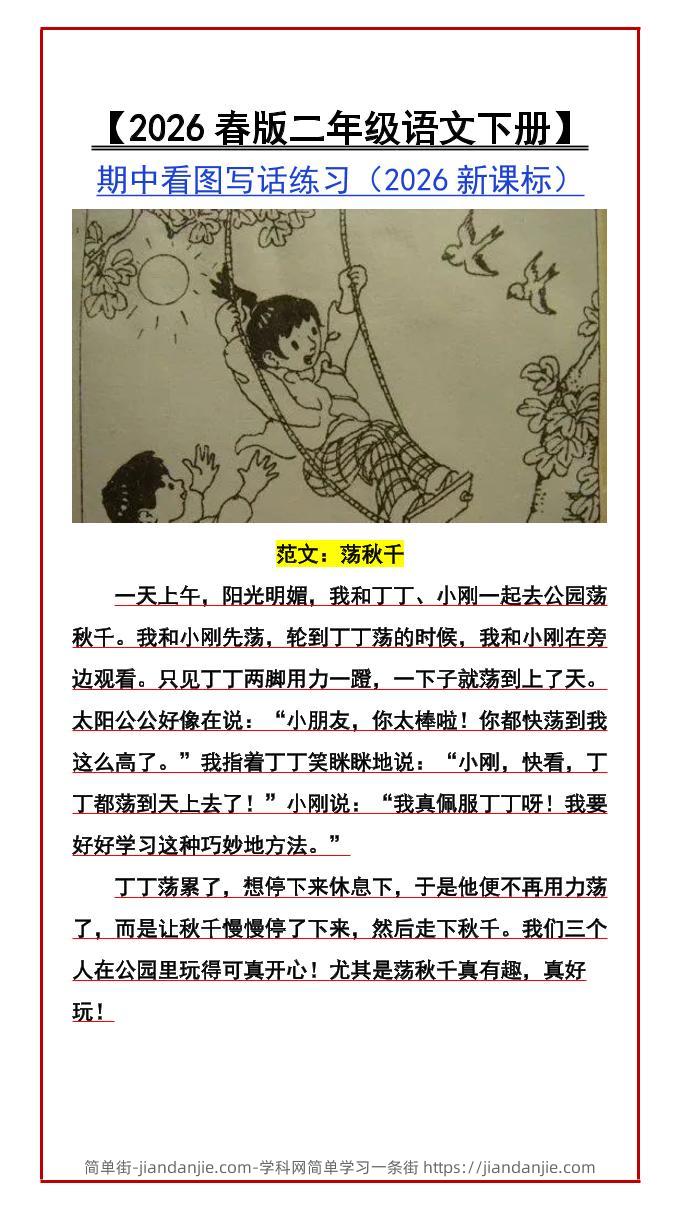 【2026 春版二年级语文下册】
期中看图写话练习（2026 新课标）
范文：荡秋千
一天上午，阳光明媚，我和丁丁、小刚一起去公园荡
秋千。我和小刚先荡，轮到丁丁荡的时候，我和小刚在旁
边观看。只见丁丁两脚用力一蹬，一下子就荡到上了天。
太阳公公好像在说：“小朋友，你太棒啦！你都快荡到我
这么高了。”我指着丁丁笑眯眯地说：“小刚，快看，丁
丁都荡到天上去了！”小刚说：“我真佩服丁丁呀！我要
好好学习这种巧妙地方法。”
丁丁荡累了，想停下来休息下，于是他便不再用力荡
了，而是让秋千慢慢停了下来，然后走下秋千。我们三个
人在公园里玩得可真开心！尤其是荡秋千真有趣，真好
玩！
简单街-jiandanjie.com-学科网简单学习一条街 https://jiandanjie.com